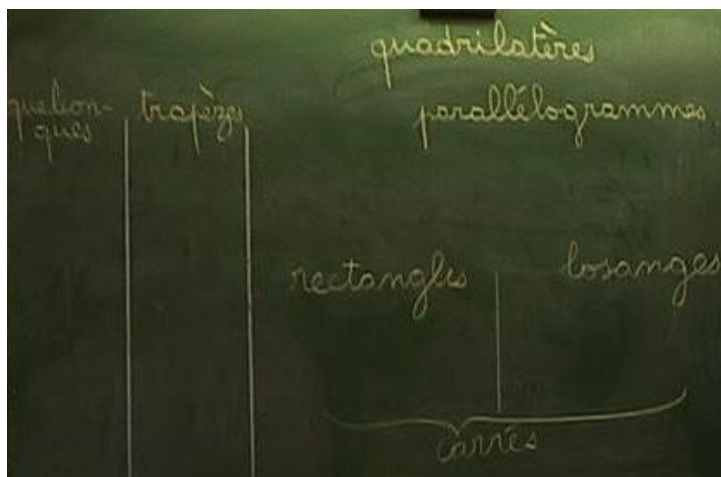 quadrilatères
quelcon-
ques
trapèzes
parallélogrammes
rectangles
losanges
carrés